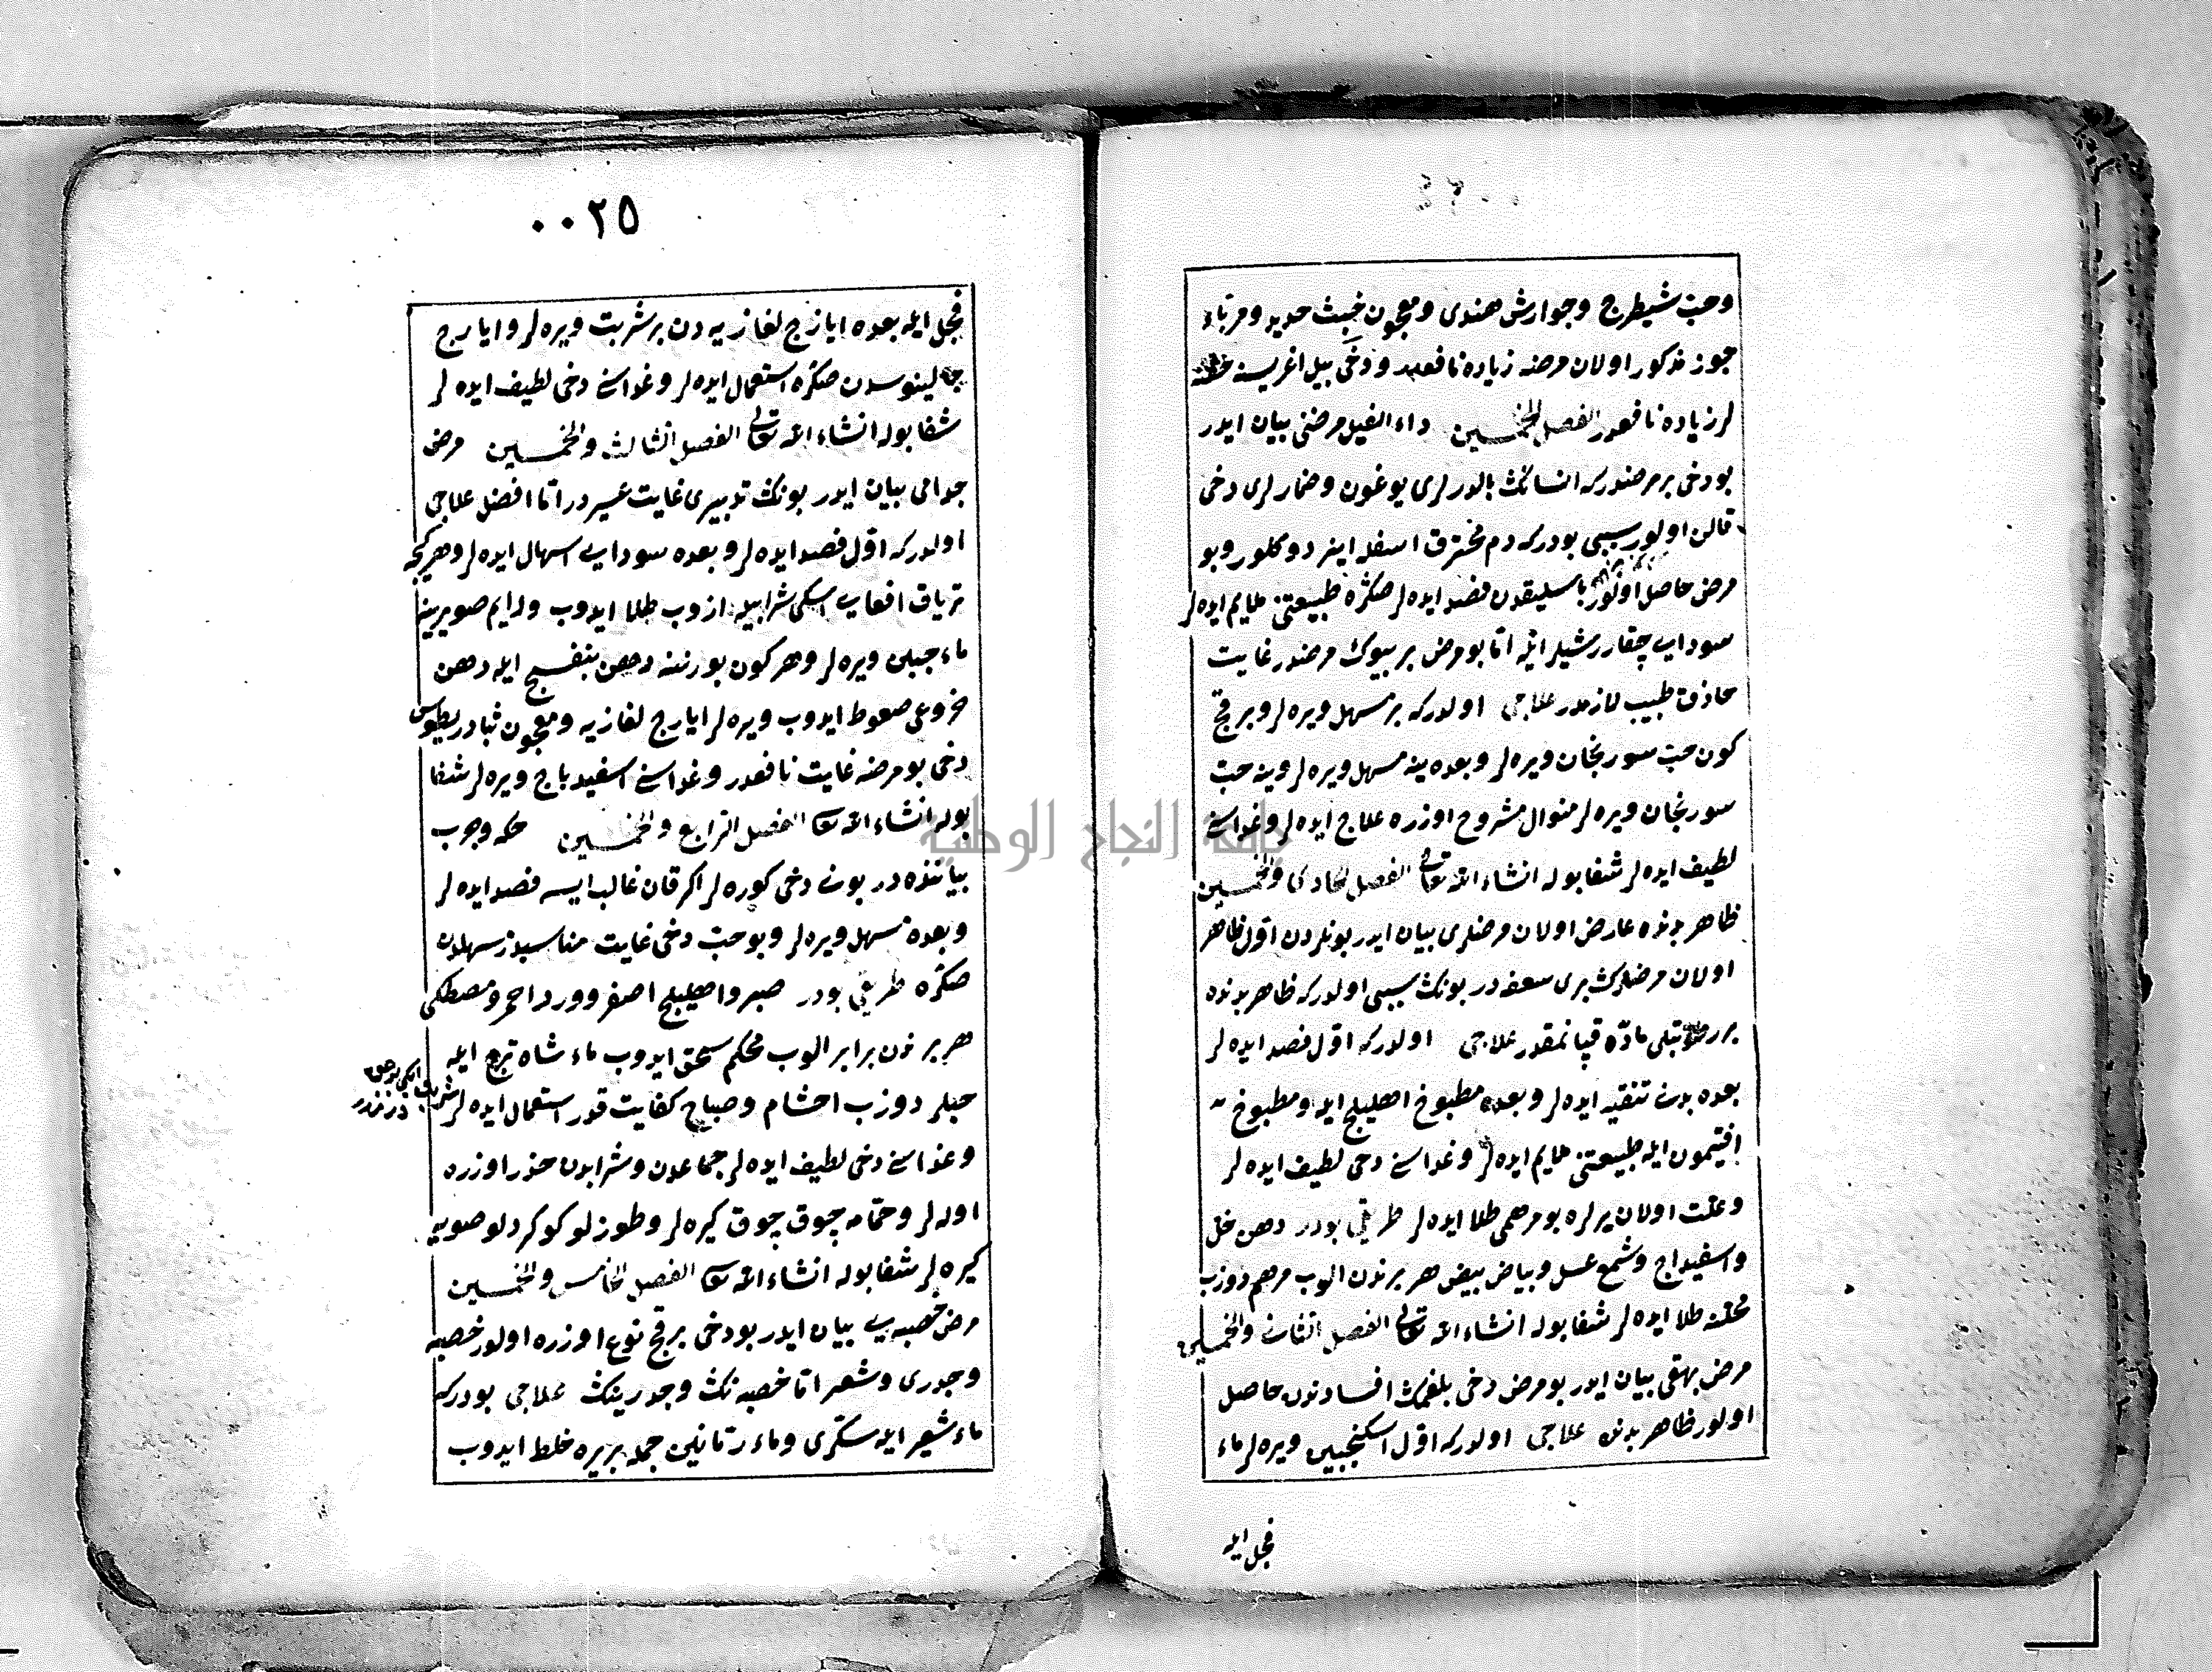 وحب شيطرج وجوارش هندى ومعجون خبث حديد ومرباء
جوز مذكور اولان مرضه زياده نافعدر ودخى بيل اغريسنه
لر زياده نافعدر الفصل الخمسين داء الفيل مرضنى بيان ايدر
بودخى بر مرضدركه انسانك بالدرلرى يوغون وضمارلرى دخى
قالن اولور سببى بودركه دم محترق اسفله اينر دوكلور وبو
مرض حاصل اولور باسليقدن فصد ايده لر صكره طبيعتنى ملايم ايده لر
سودايى چقارر شيلر ايله اما بو مرض بر بيوك مرضدر غايت
حاذق طبيب لازمدر علاجى اولدركه بر مسهل ويره لر وبر قچ
كون حب سورنجان ويره لر وبعده ينه مسهل ويره لر وينه حب
سورنجان ويره لر منوال مشروح اوزره علاج ايده لر وغداسى
لطيف ايده لر شفا بوله انشاء الله تعالى الفصل الحادى والخمسين
ظاهر بدنده عارض اولان مرضلرى بيان ايدر بونلردن اول ظاهر
اولان مرضلرك برى سعفه در بونك سببى اولدركه ظاهر بدنده
بر رطوبتلى ماده قپانمقدر علاجى اولدركه اول فصد ايده لر
بعده بدنى تنقيه ايده لر وبعده مطبوخ اهليلج ايله ومطبوخ
افتيمون ايله طبيعتنى ملايم ايده لر وغداسى دخى لطيف ايده لر
وعلت اولان يرلره بو مرهمى طلا ايده لر طريقى بودر دهن خل
واسفيداج وشمع عسل وبياض بيض هر برندن الوب مرهم دوزب
محلنه طلا ايده لر شفا بوله انشاء الله تعالى الفصل الثانى والخمسين
مرض بهقى بيان ايدر بو مرض دخى بلغمك افسادندن حاصل
اولور ظاهر بدنده علاجى اولدركه اول اسكنجبين ويره لر ماء
فجل ايله
٠٠٢٥
فجل ايله بعده ايارج لغازيه دن بر شربت ويره لر وايارج
جالينوسدن صكره استعمال ايده لر وغداسى دخى لطيف ايده لر
شفا بوله انشاء الله تعالى الفصل الثالث والخمسين مرض
جذامى بيان ايدر بونك تدبيرى غايت عسيردر اما افضل علاجى
اولدركه اول فصد ايده لر وبعده سودايى اسهال ايده لر وهر كيجه
ترياق افعايى اسكى شرابيله ازوب طلا ايدوب ودايم صويرينه
ماء جبلن ويره لر وهر كون بورننه دهن بنفسج ايله دهن
خروعى صعوط ايدوب ويره لر ايارج لغازيه ومعجون ثيادريطوس
دخى بو مرضه غايت نافعدر وغداسى اسفيدباج ويره لر شفا
بوله انشاء الله تعالى الفصل الرابع والخمسين حكه وجرب
بياننده در بونى دخى كوره لر اكر قان غالب ايسه فصد ايده لر
وبعده مسهل ويره لر وبو حب دخى غايت مناسبدر مسهلدن
صكره طريقى بودر صبر واهليلج اصفر وورد احمر ومصطكى
هر برندن برابر الوب محكم سحق ايدوب ماء شاه ترج ايله
حبلر دوزب اخشام وصباح كفايت قدر استعمال ايده لر
شربتى ايكى درهمدر
وغداسى دخى لطيف ايده لر جماعدن وشرابدن حذر اوزره
اوله لر وحمامه چوق چوق كيره لر وطوزلو كوكردلو صويه
كيره لر شفا بوله انشاء الله تعالى الفصل الخامس والخمسين
مرض خصبه يى بيان ايدر بودخى بر قچ نوع اوزره اولور خصبه
وجدرى وشعر اما خصبه نك وجدرينك علاجى بودركه
ماء شعير ايله سكرى وماء رمانين جمله بريره خلط ايدوب